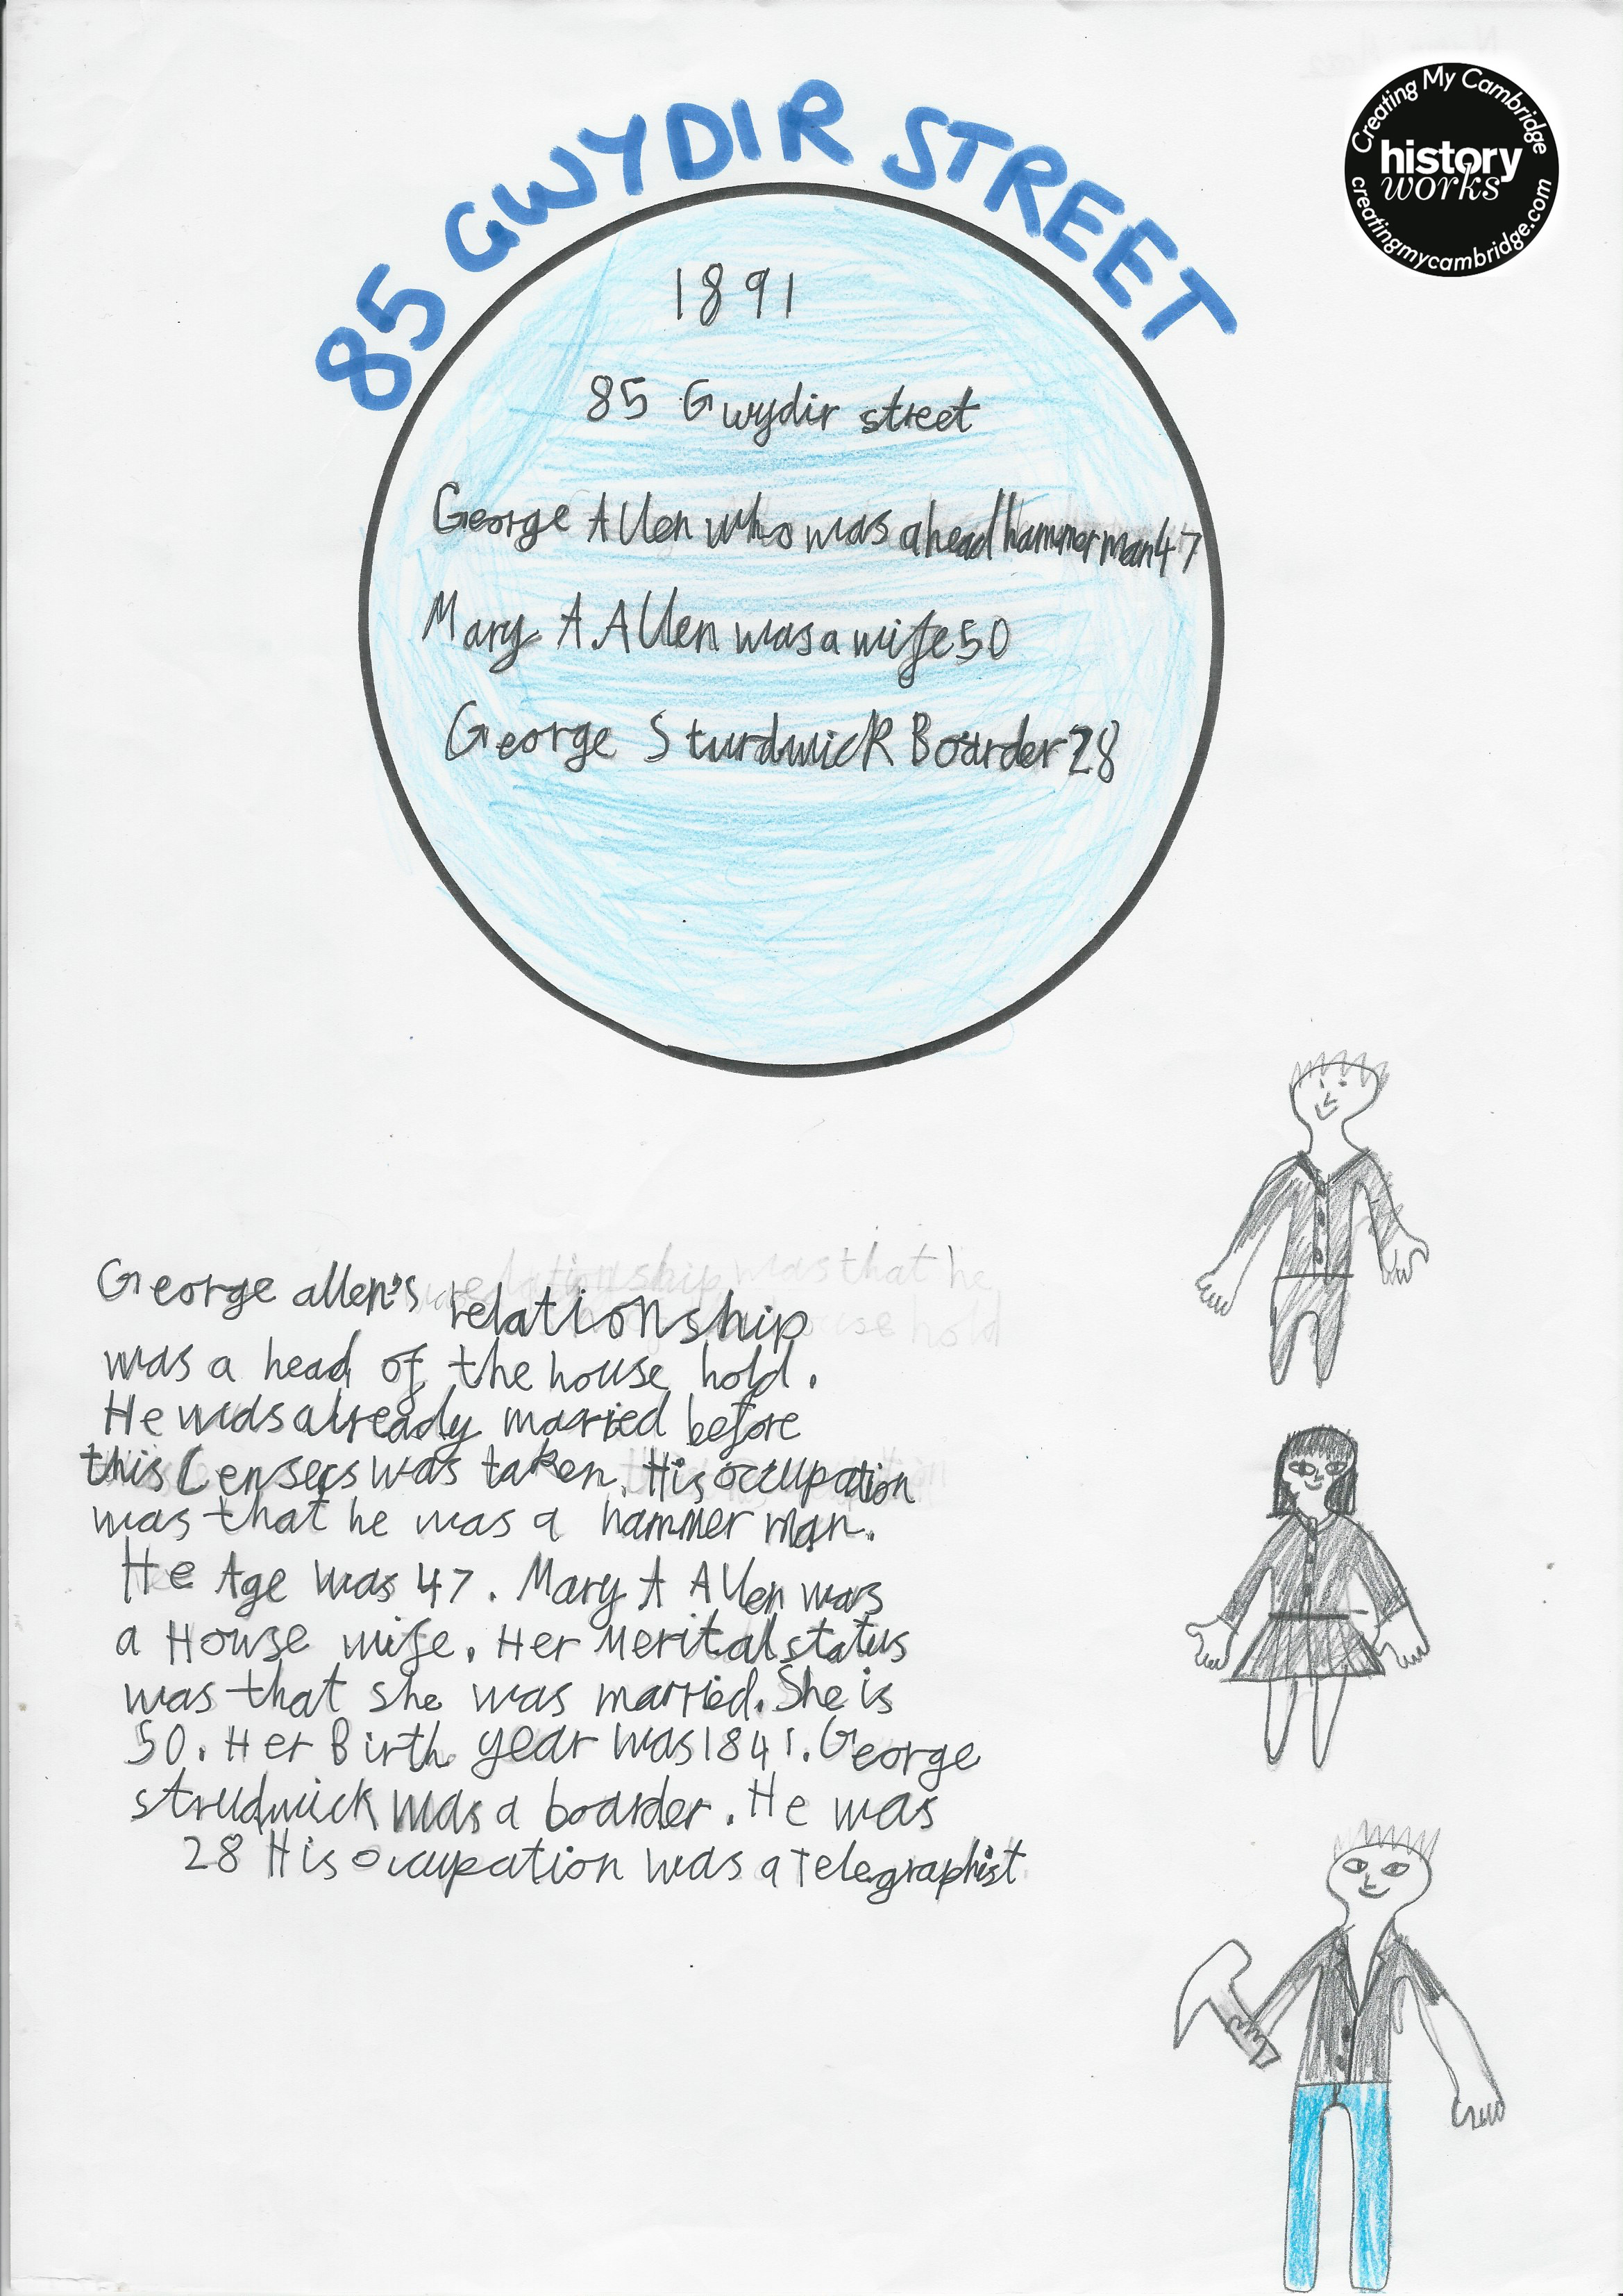 Creating My Cambridge
history
works
creatingmycambridge.com
85 GWYDIR STREET
1891
85 Gwydir street
George Allen who was a head hammer man 47
Mary A. Allen was a wife 50
George Sturdwick Boarder 28
George allen's relationship
was a head of the house hold.
He was already married before
this Censecs was taken. His occupation
was that he was a hammer man.
He Age was 47. Mary A Allen was
a House wife. Her Merital status
was that she was married. She is
50. Her Birth year was 1841. George
strudwick was a boarder. He was
28 His occupation was a Telegraphist